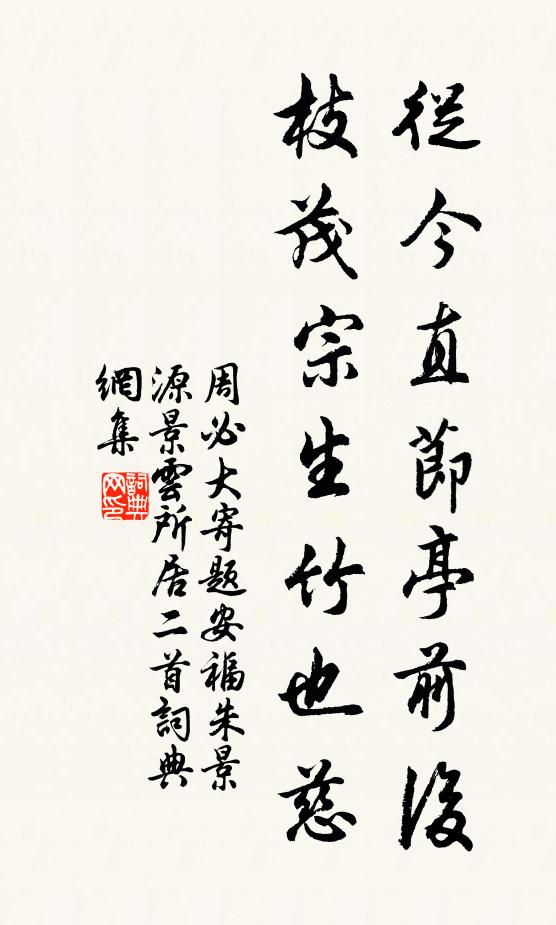 從今直節亭前後
枝茂宗生竹也慈
周必大寄題安福朱景
源景雲所居二首詞典
網集
詞典网印